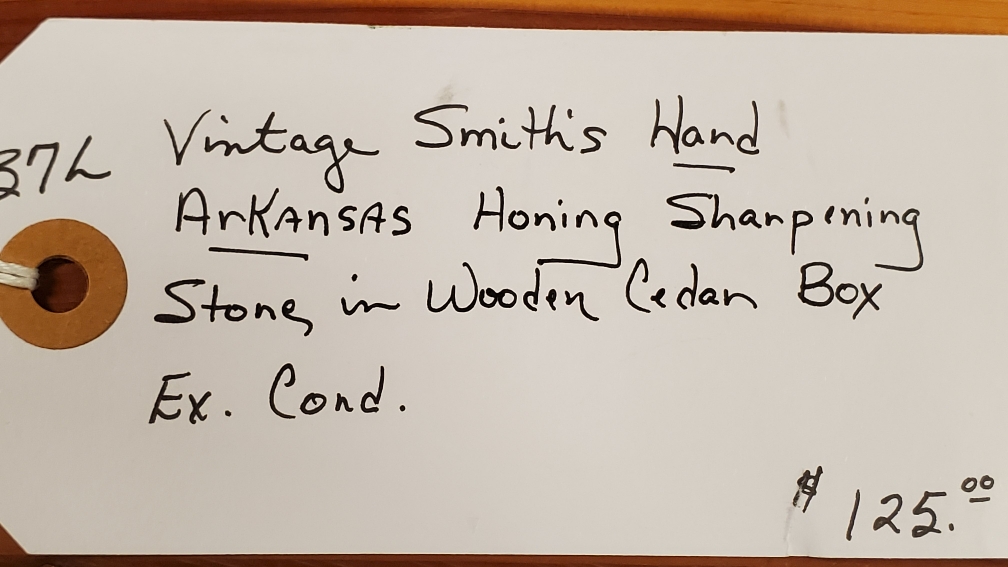 37L
Vintage Smith's Hand
Arkansas Honing Sharpening
Stone, in Wooden Cedar Box
Ex. Cond.
$ 125.00